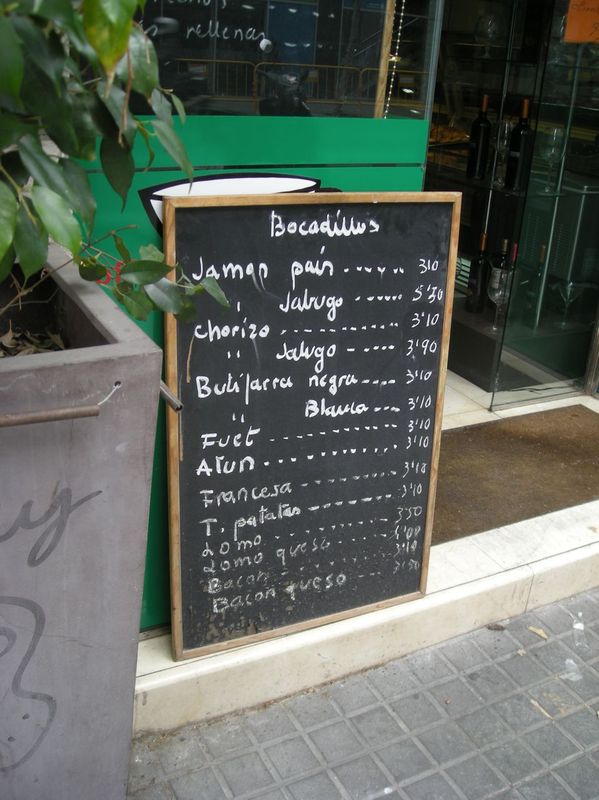 rellenas
Bocadillos
Jamon pais ------- 310
" Jabugo ------ 5'30
chorizo ------------ 3'10
" Jabugo ----- 3'90
Butifarra negra ---- 3'10
" Blanca --- 3'10
Fuet ---------------- 3'10
Atun --------------- 3'10
Francesa ------------ 3'10
T. patatas ---------- 3'10
Lomo ------------- 3'50
Lomo queso ------- 4'00
Bacon -----------
Bacon queso ------ 3'50